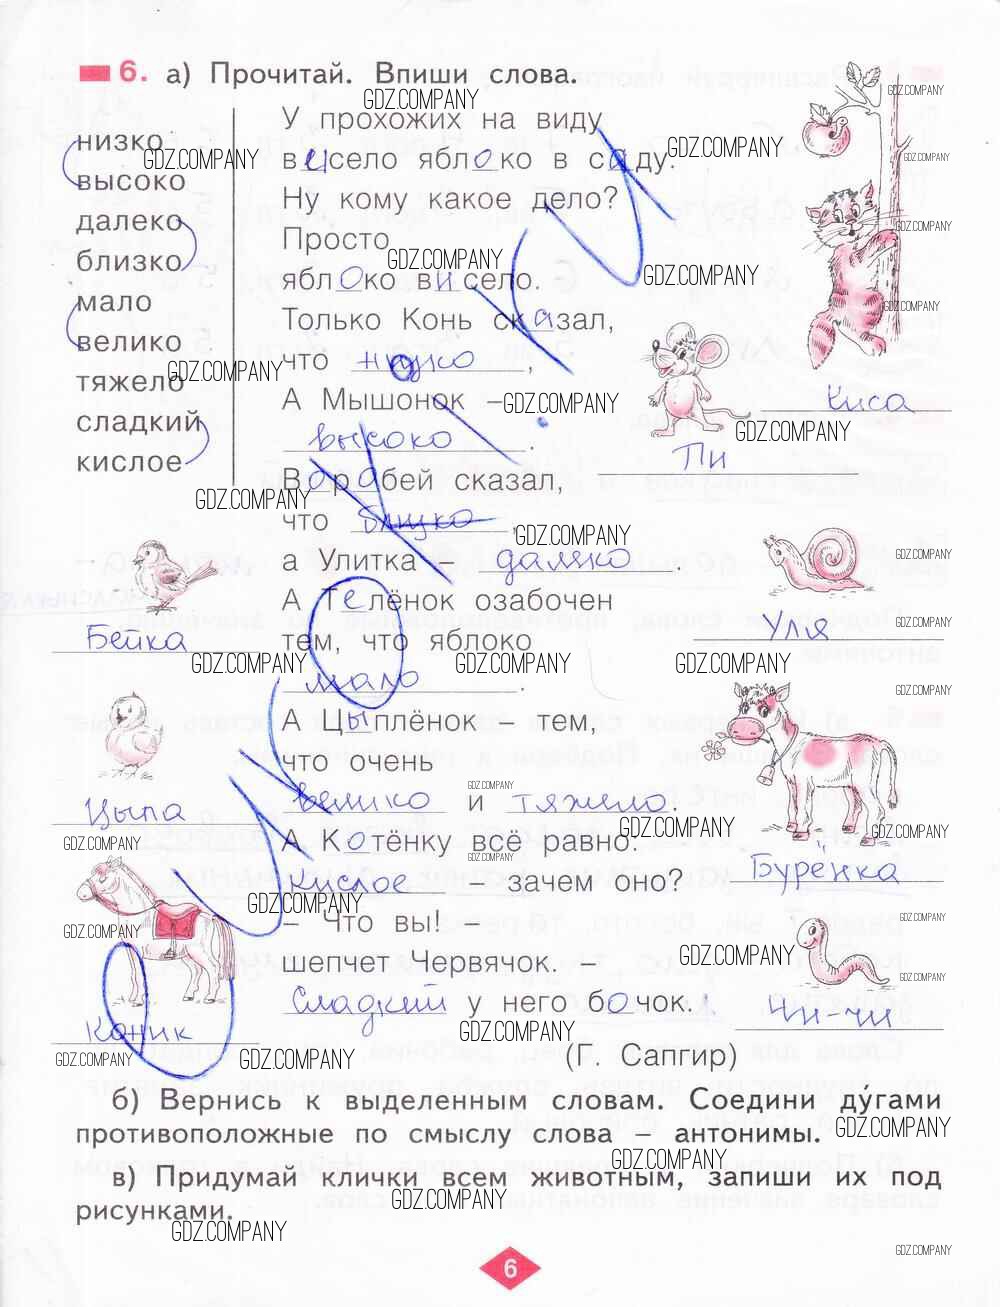 6. а) Прочитай. Впиши слова.
низко
высоко
далеко
близко
мало
велико
тяжело
сладкий
кислое
У прохожих на виду
висело яблоко в саду.
Ну кому какое дело?
Просто
яблоко висело.
Только Конь сказал,
что низко,
А Мышонок –
высоко.
Воробей сказал,
что близко,
а Улитка – далеко.
А Телёнок озабочен
тем, что яблоко
мало.
А Цыплёнок – тем,
что очень
велико и тяжело.
А Котёнку всё равно:
Кислое – зачем оно?
– Что вы! –
шепчет Червячок. –
Сладкий у него бочок.
(Г. Сапгир)
Киса
Пи
Бейка
Уля
Цыпа
Бурёнка
Коник
Чи-чи
б) Вернись к выделенным словам. Соедини дугами
противоположные по смыслу слова – антонимы.
в) Придумай клички всем животным, запиши их под
рисунками.
6
GDZ.COMPANY